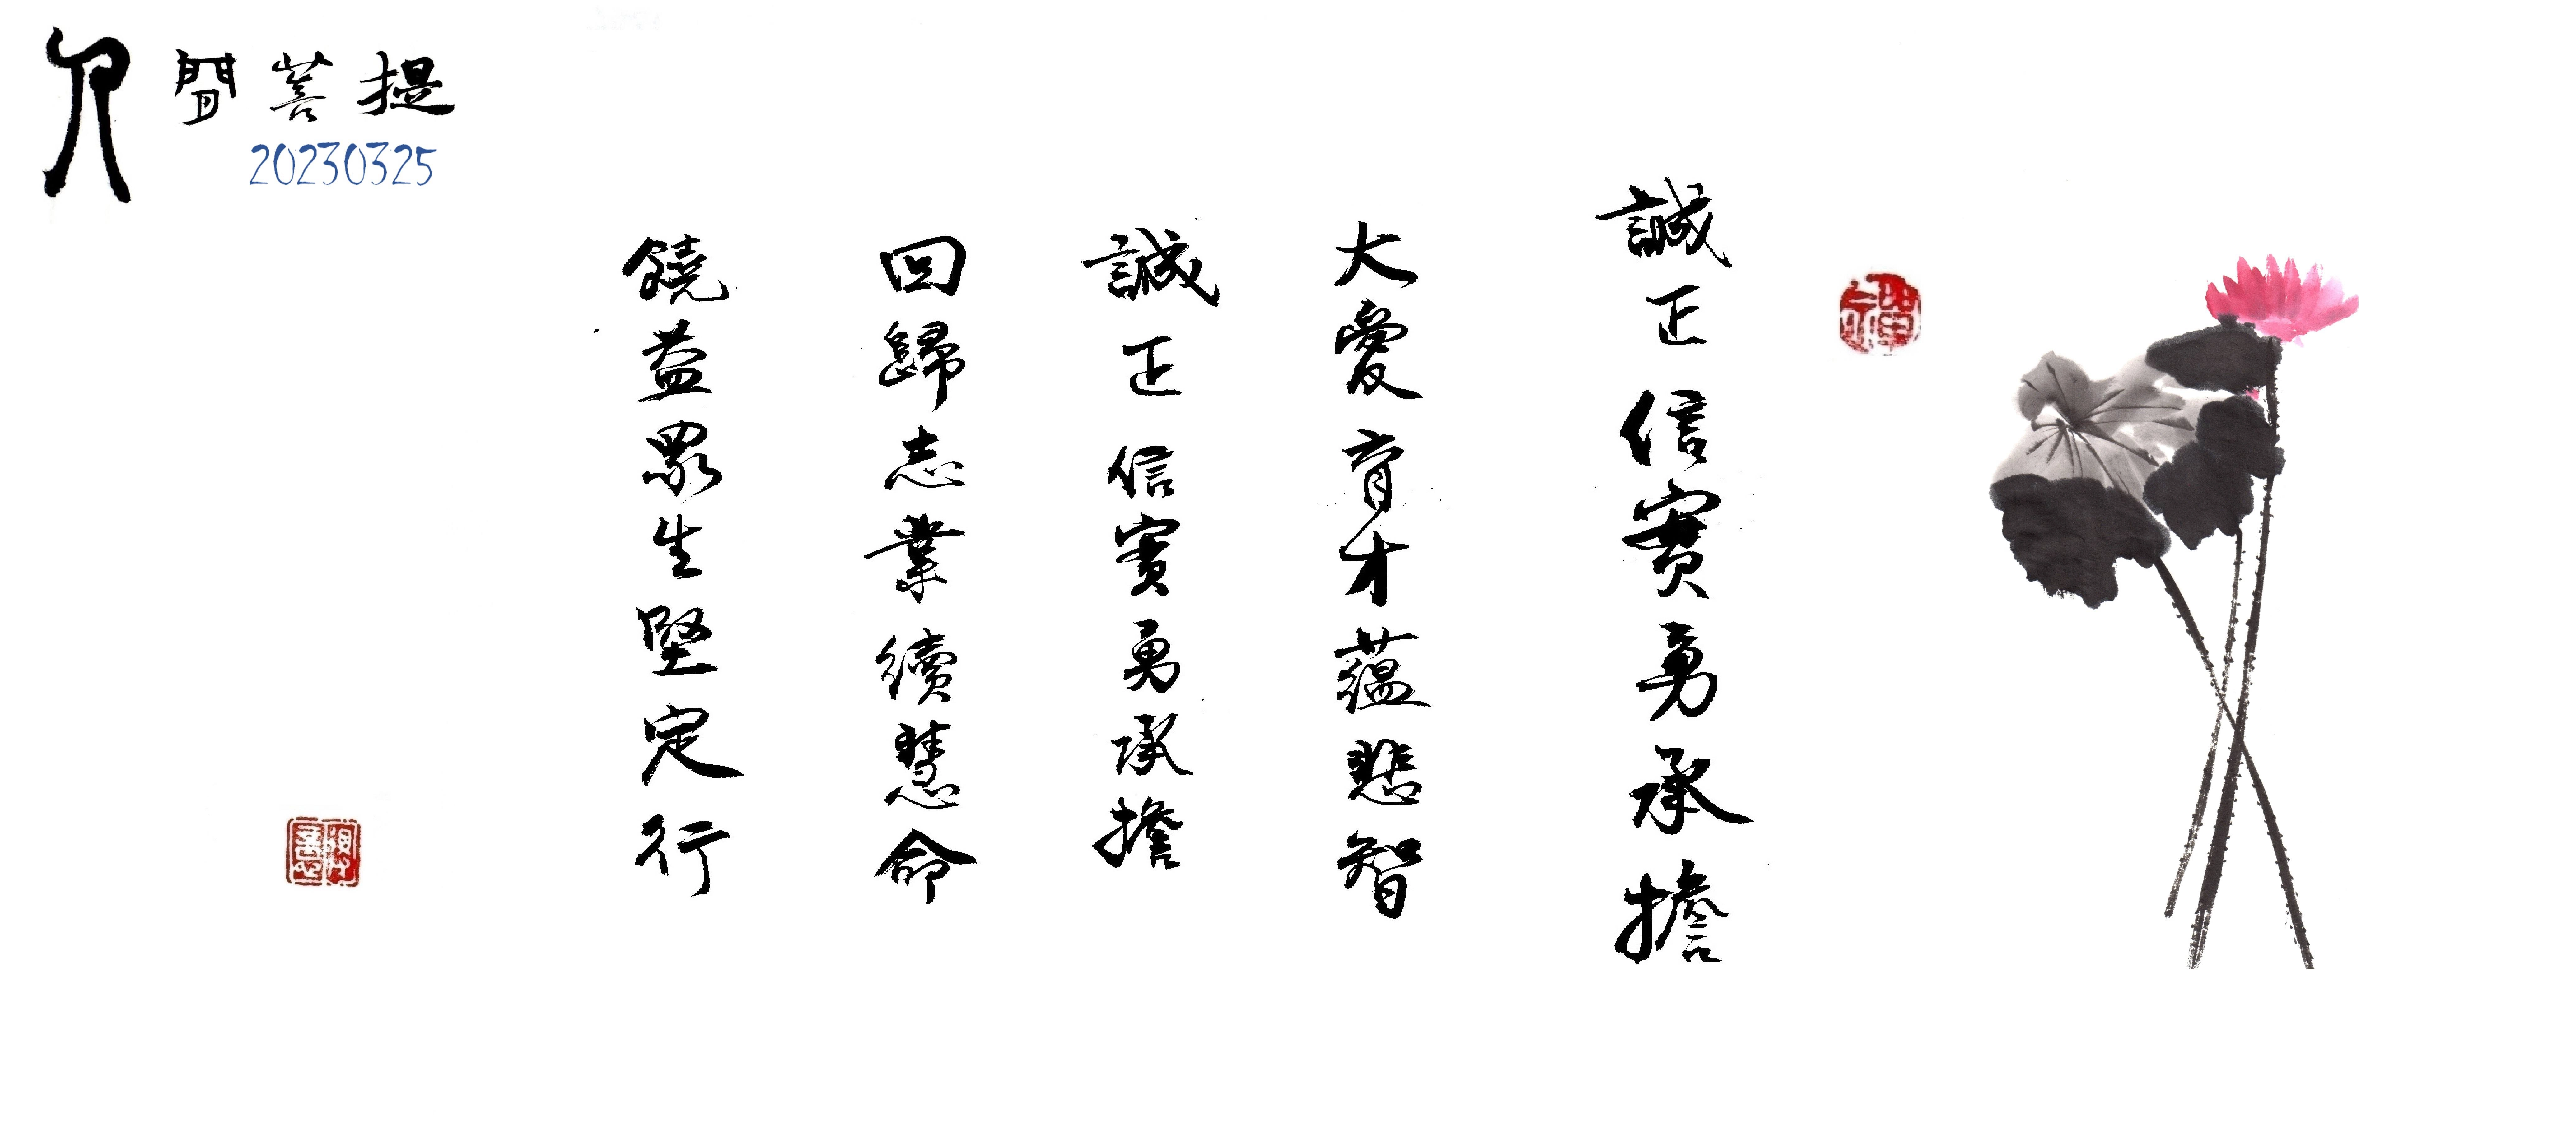 人間菩提
20230325
誠正信實勇承擔
大愛育才蘊悲智
誠正信實勇承擔
回歸志業續慧命
饒益眾生堅定行
禪